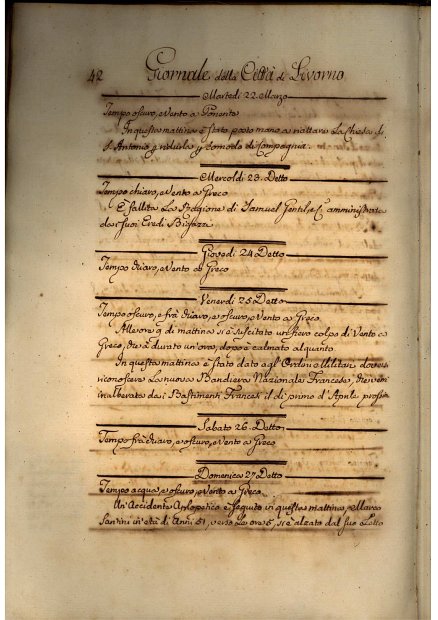 42 Giornale della Città di Livorno
Martedì 22. Marzo
Tempo oscuro, e Vento a Ponente
In questa mattina è stato posto mano a riattare La Chiesa di
S. Antonio p. ridurla p. comodo di Compagnia
Mercoldì 23. Detto
Tempo chiaro, e Vento a Greco
È fallita La Ragione di Samuel Gentil, e C. amministrata
da i suoi Eredi
Giovedì 24 Detto
Tempo chiaro, e Vento a Greco
Venerdì 25 Detto
Tempo oscuro, e frà chiaro, e oscuro, e Vento a Greco
Alle ore 9 di mattina si è suscitato un fiero colpo di Vento a
Greco, che è durato un'ora, dopo è calmato alquanto.
In questa mattina è stato dato agl' Ordini Militari
riconoscere La nuova Bandiera Nazionale Francese, che
inalberata da i Bastimenti Francesi il dì primo d'Aprile
Sabato 26. Detto
Tempo frà chiaro, e oscuro, e Vento a Greco
Domenica 27 Detto
Tempo acqua, e oscuro, e Vento a Greco
Un' Accidente Apopletico è seguito in questa mattina, Marco
Santini in età di Anni 51, verso Le ore 5, si è alzato dal suo Letto